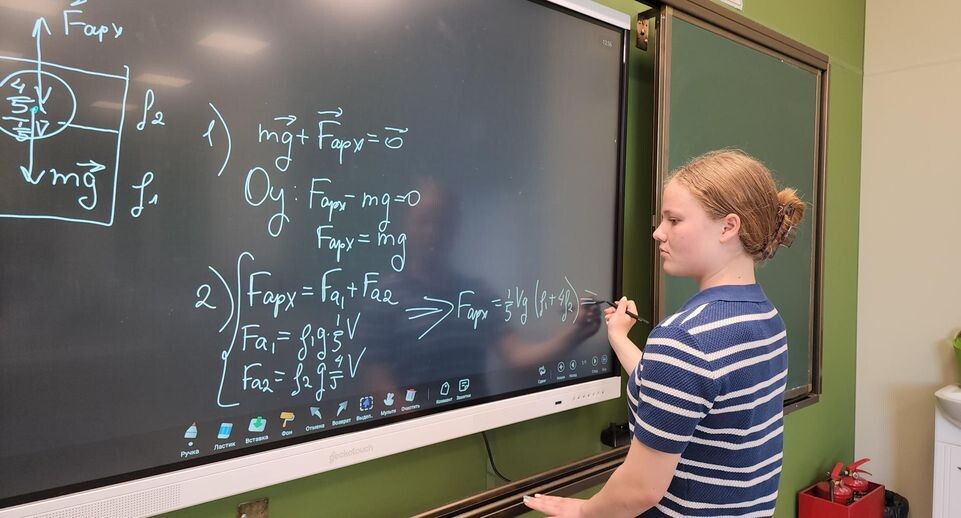 F⃗арх
4/5 V
1/5 V
ρ₂
mg⃗
ρ₁
1) mg⃗ + F⃗арх = 0⃗
Oy: Fарх - mg = 0
Fарх = mg
2) { Fарх = Fа₁ + Fа₂
Fа₁ = ρ₁g·1/5 V
Fа₂ = ρ₂g 4/5 V
=> Fарх = 1/5 Vg (ρ₁ + 4ρ₂) =
Ручка Ластик Вставка Фон Отмена Возврат Выдел. Мульти Очистить
geckotouch